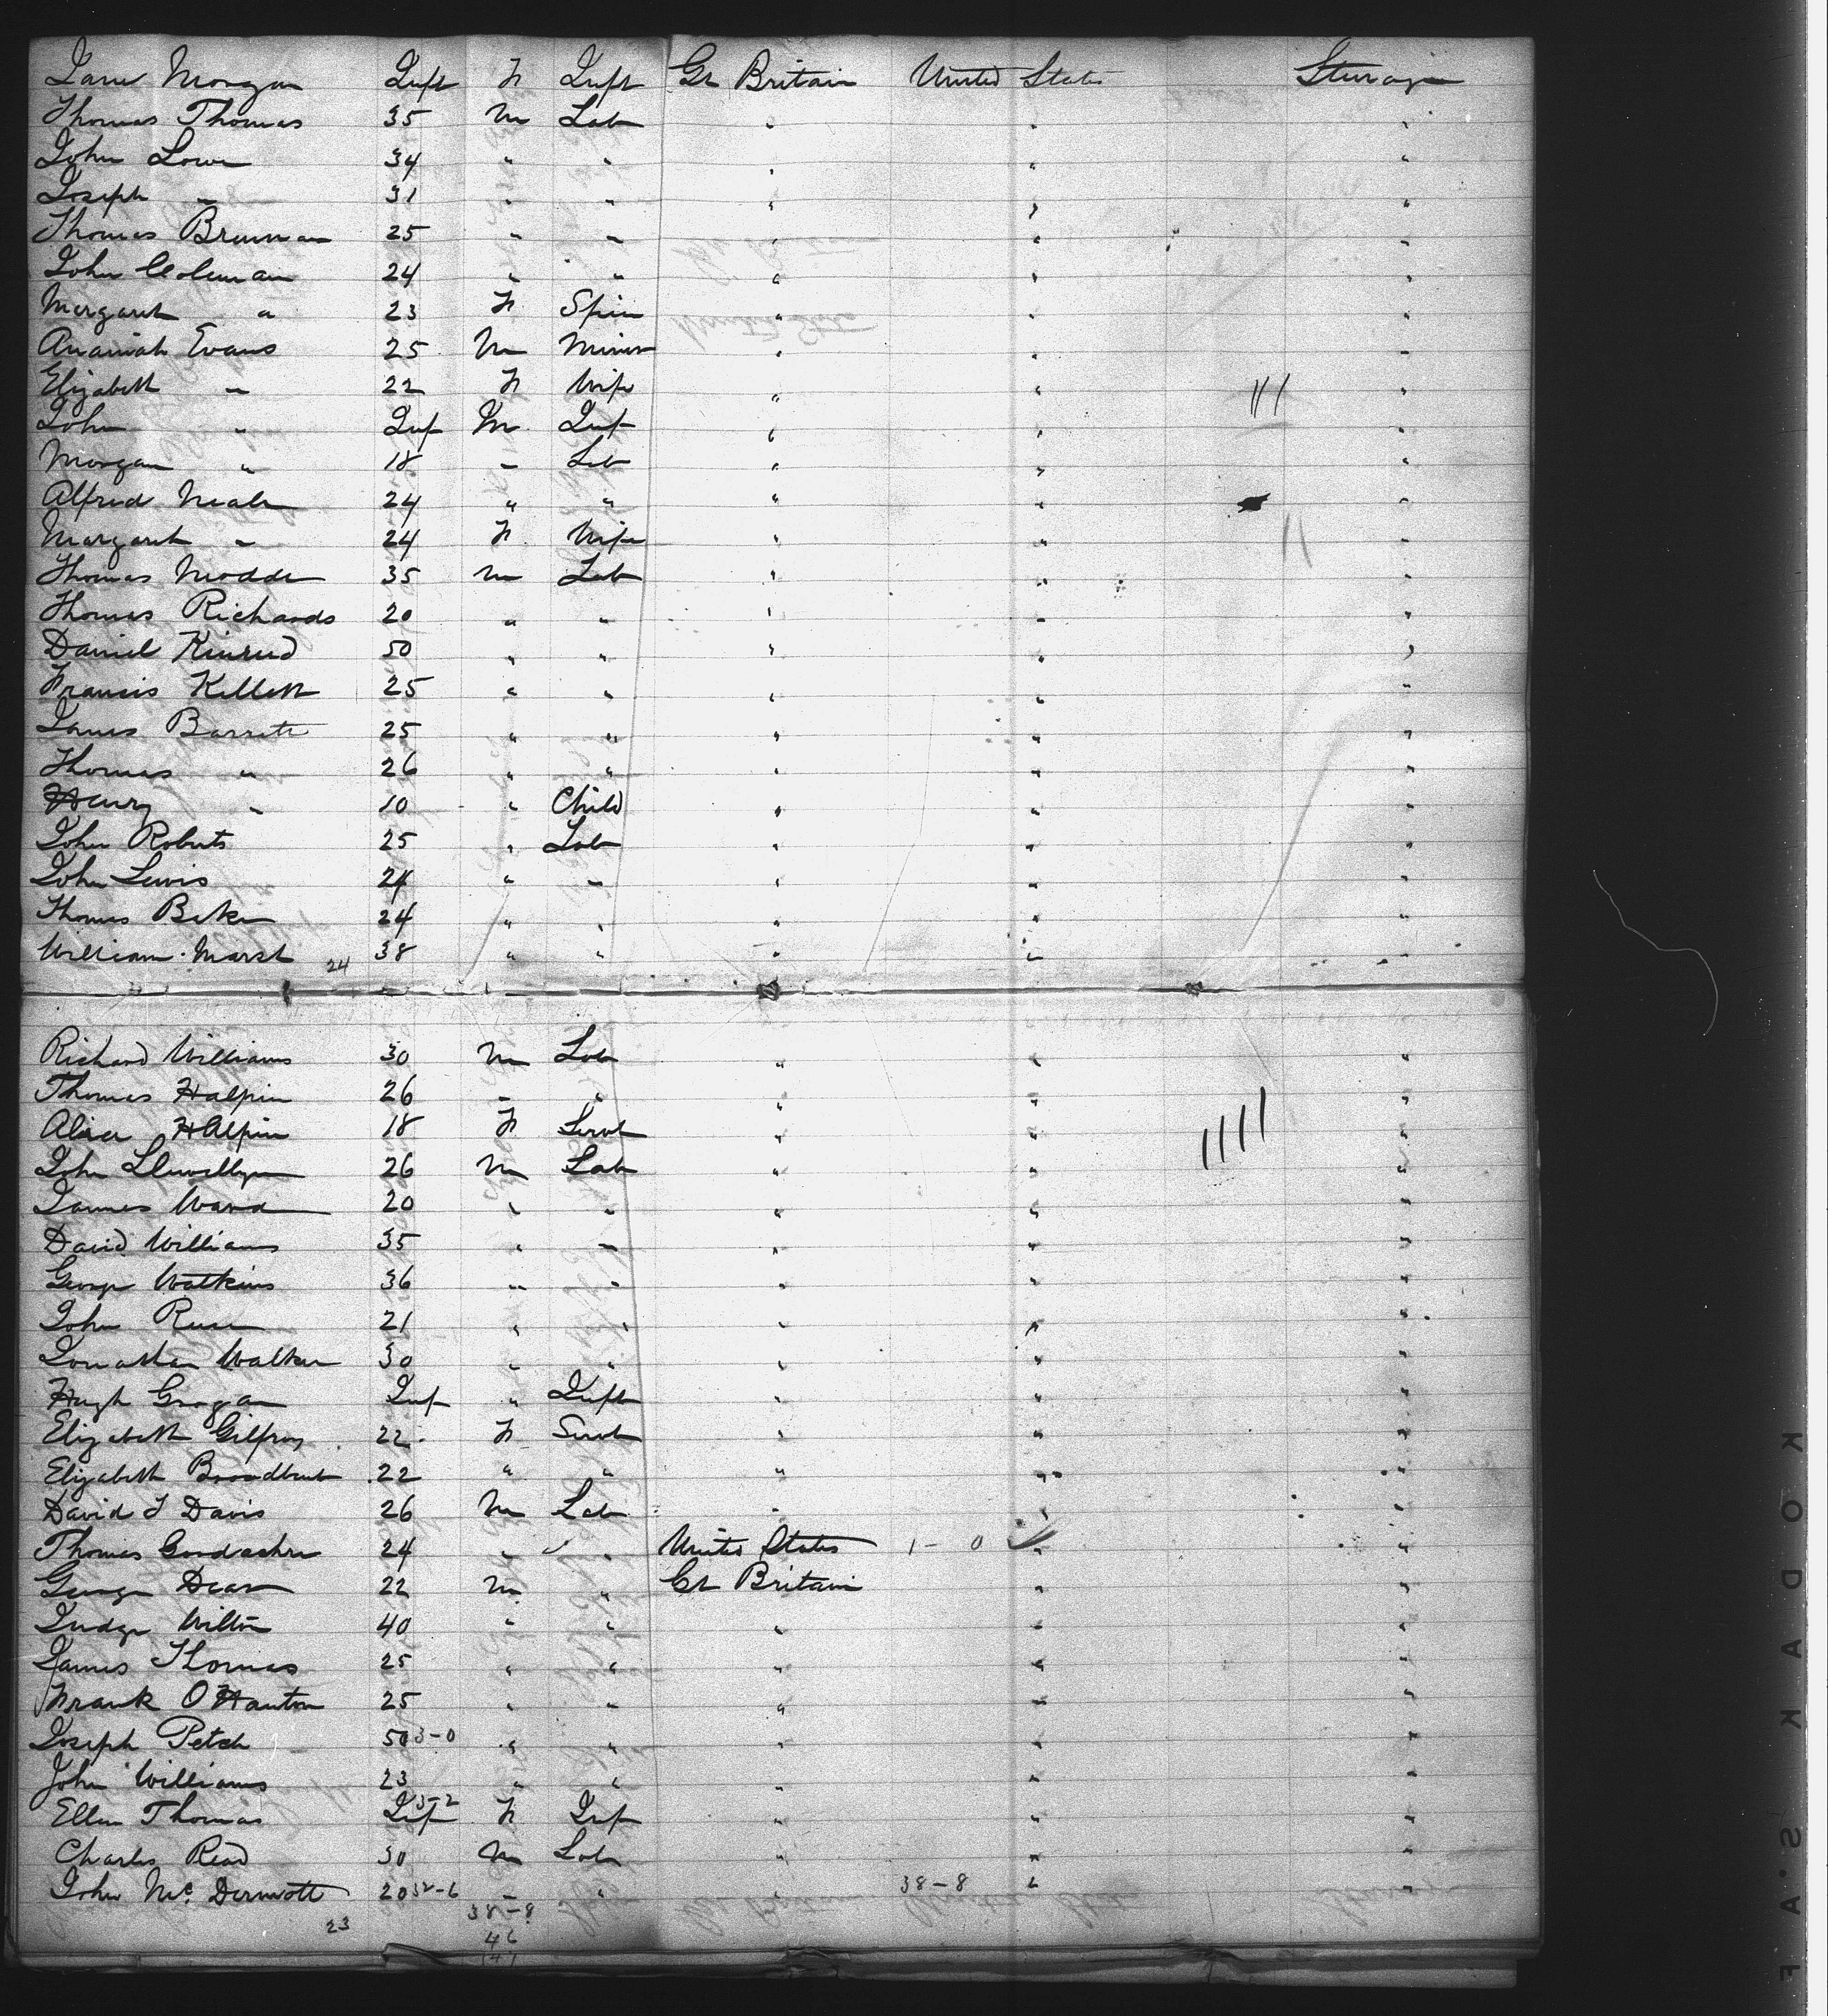 Jane Morgan Inft F Inft Gt Britain United States Steerage
Thomas Thomas 35 M Lab " " "
John Lowe 34 " " " " "
Joseph " 31 " " " " "
Thomas Brennan 25 " " " " "
John Coleman 24 " " " " "
Margaret " 23 F Spin " " "
Anamiah Evans 25 M Miner " " "
Elizabeth " 22 F Wife " " "
John " Inf M Inf " " "
Morgan " 18 " Lab " " "
Alfred Neale 24 " " " " "
Margaret " 24 F Wife " " "
Thomas 35 M Lab " " "
Thomas Richards 20 " " " " "
Daniel 50 " " " " "
Francis Killett 25 " " " " "
James Barrett 25 " " " " "
Thomas " 26 " " " " "
Henry " 10 " Child " " "
John Roberts 25 " Lab " " "
John Lewis 24 " " " " "
Thomas Baker 24 " " " " "
William Marsh 24 38 " " " " "
Richard Williams 30 M Lab " " "
Thomas Halpin 26 " " " " "
Alice Halpin 18 F Servt " " "
John Llewellyn 26 M Lab " " "
James Ward 20 " " " " "
David Williams 35 " " " " "
George Watkins 36 " " " " "
John 21 " " " " "
Jonathan Walker 30 " " " " "
Hugh Grogan Inf " Inft " " "
Elizabeth Gilfroy 22 F Servt " " "
Elizabeth Broadbent 22 " " " " "
David J Davis 26 M Lab " " "
Thomas Goodachre 24 " " United States 1-0 " "
George Dear 22 M " Gt Britain " "
Judge Wilton 40 " " " " "
James Thomas 25 " " " " "
Frank O Hanton 25 " " " " "
Joseph Petch 50 3-0 " " " " "
John Williams 23 " " " " "
Ellen Thomas Inf 35-2 F Inf " " "
Charles Read 30 M Lab " " "
John McDermott 20 32-6 " " " 38-8 " "
23 38-8
46
KODAK S.A F